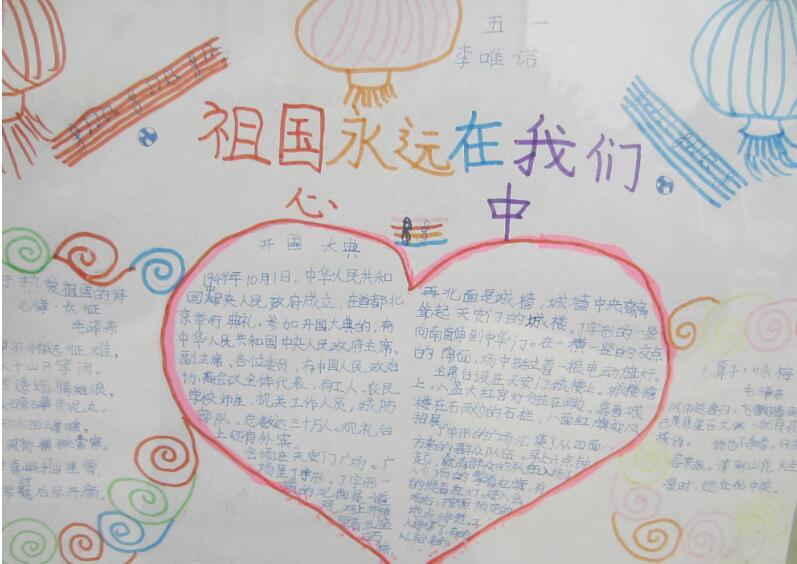 五 一
李唯诺
祖国永远在我们
心 中
开国 大典
1949年10月1日,中华人民共和
国中央人民政府成立,在首都北
京举行典礼。参加开国大典的,有
中华人民共和国中央人民政府主席、
副主席、各位委员,有中国人民政治
协商会议全体代表,有工人、农民、
学校师生、机关工作人员,城防
部队,总数达三十万人。观礼台
上还有外宾。
会场在天安门广场。广
场呈丁字形。丁字形一
横的北面是一道
再北面是城墙,城墙中央高高
耸起天安门的城楼。丁字形的一竖
向南直伸到中华门。在一横一竖的交点
的南面,场中挺立着一根电动旗杆。
主席台设在天安门城楼上。城楼檐
上,八盏大红宫灯分挂在两边。靠着城
楼左右两边的石栏,八面红旗迎风
招展。
丁字形的广场汇集了从四面八
方来的群众队伍。早上六点钟
起,就有群众的队伍入场了
人们有的擎着红旗,有
的提着红灯。进入会
场后,按照预定的
地点排列。
热爱祖国的诗
七律·长征
毛泽东
不怕远征难,
水千山只等闲。
逶迤腾细浪,
磅礴走泥丸。
水拍云崖暖,
渡桥横铁索寒。
喜岷山千里雪,
军过后尽开颜。
卜算子·咏梅
毛泽东
风雨送春归,飞雪迎春到
已是悬崖百丈冰,犹有花
枝俏。俏也不争春,只
春来报。待到山花
漫时,她在丛中笑。